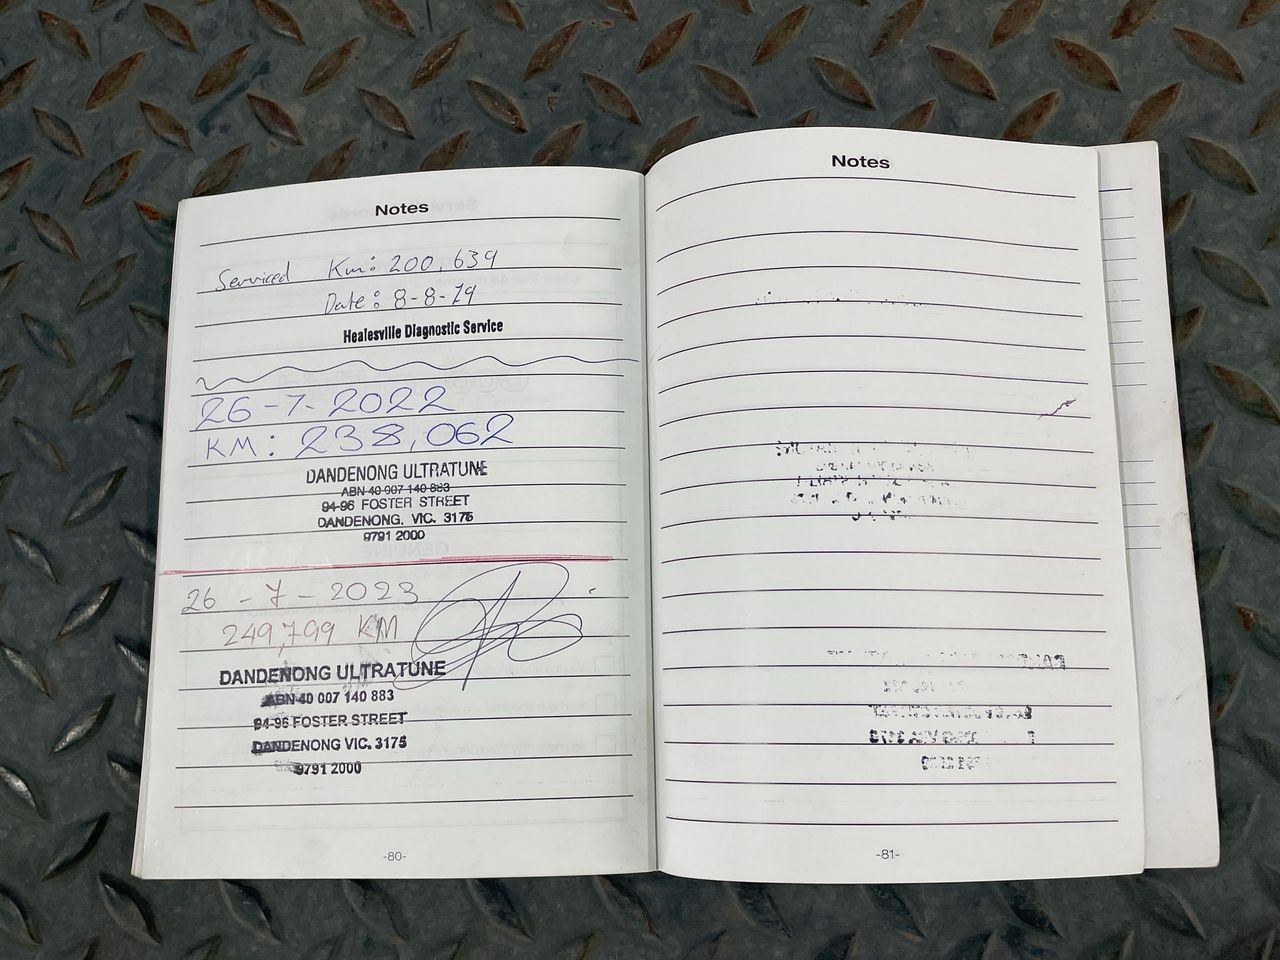 Notes
Serviced Km: 200,639
Date: 8-8-19
Healesville Diagnostic Service
26-7-2022
KM: 238,062
DANDENONG ULTRATUNE
ABN 40 007 140 883
94-96 FOSTER STREET
DANDENONG, VIC. 3175
9791 2000
26-7-2023
249,799 KM
DANDENONG ULTRATUNE
ABN 40 007 140 883
94-96 FOSTER STREET
DANDENONG VIC. 3175
9791 2000
-80-
Notes
-81-